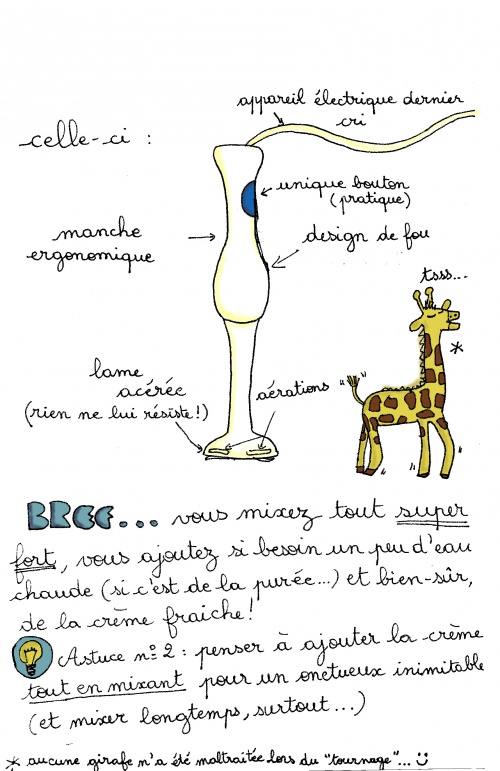 appareil électrique dernier
cri
celle-ci :
unique bouton
(pratique)
manche
ergonomique
design de fou
tsss...
*
lame
acérée
(rien ne lui résiste!)
aérations
BREE... vous mixez tout super
fort, vous ajoutez si besoin un peu d'eau
chaude (si c'est de la purée...) et bien-sûr,
de la crème fraiche!
Astuce n° 2 : penser à ajouter la crème
tout en mixant pour un onctueux inimitable
(et mixer longtemps, surtout...)
* aucune girafe n'a été maltraitée lors du "tournage"... :)